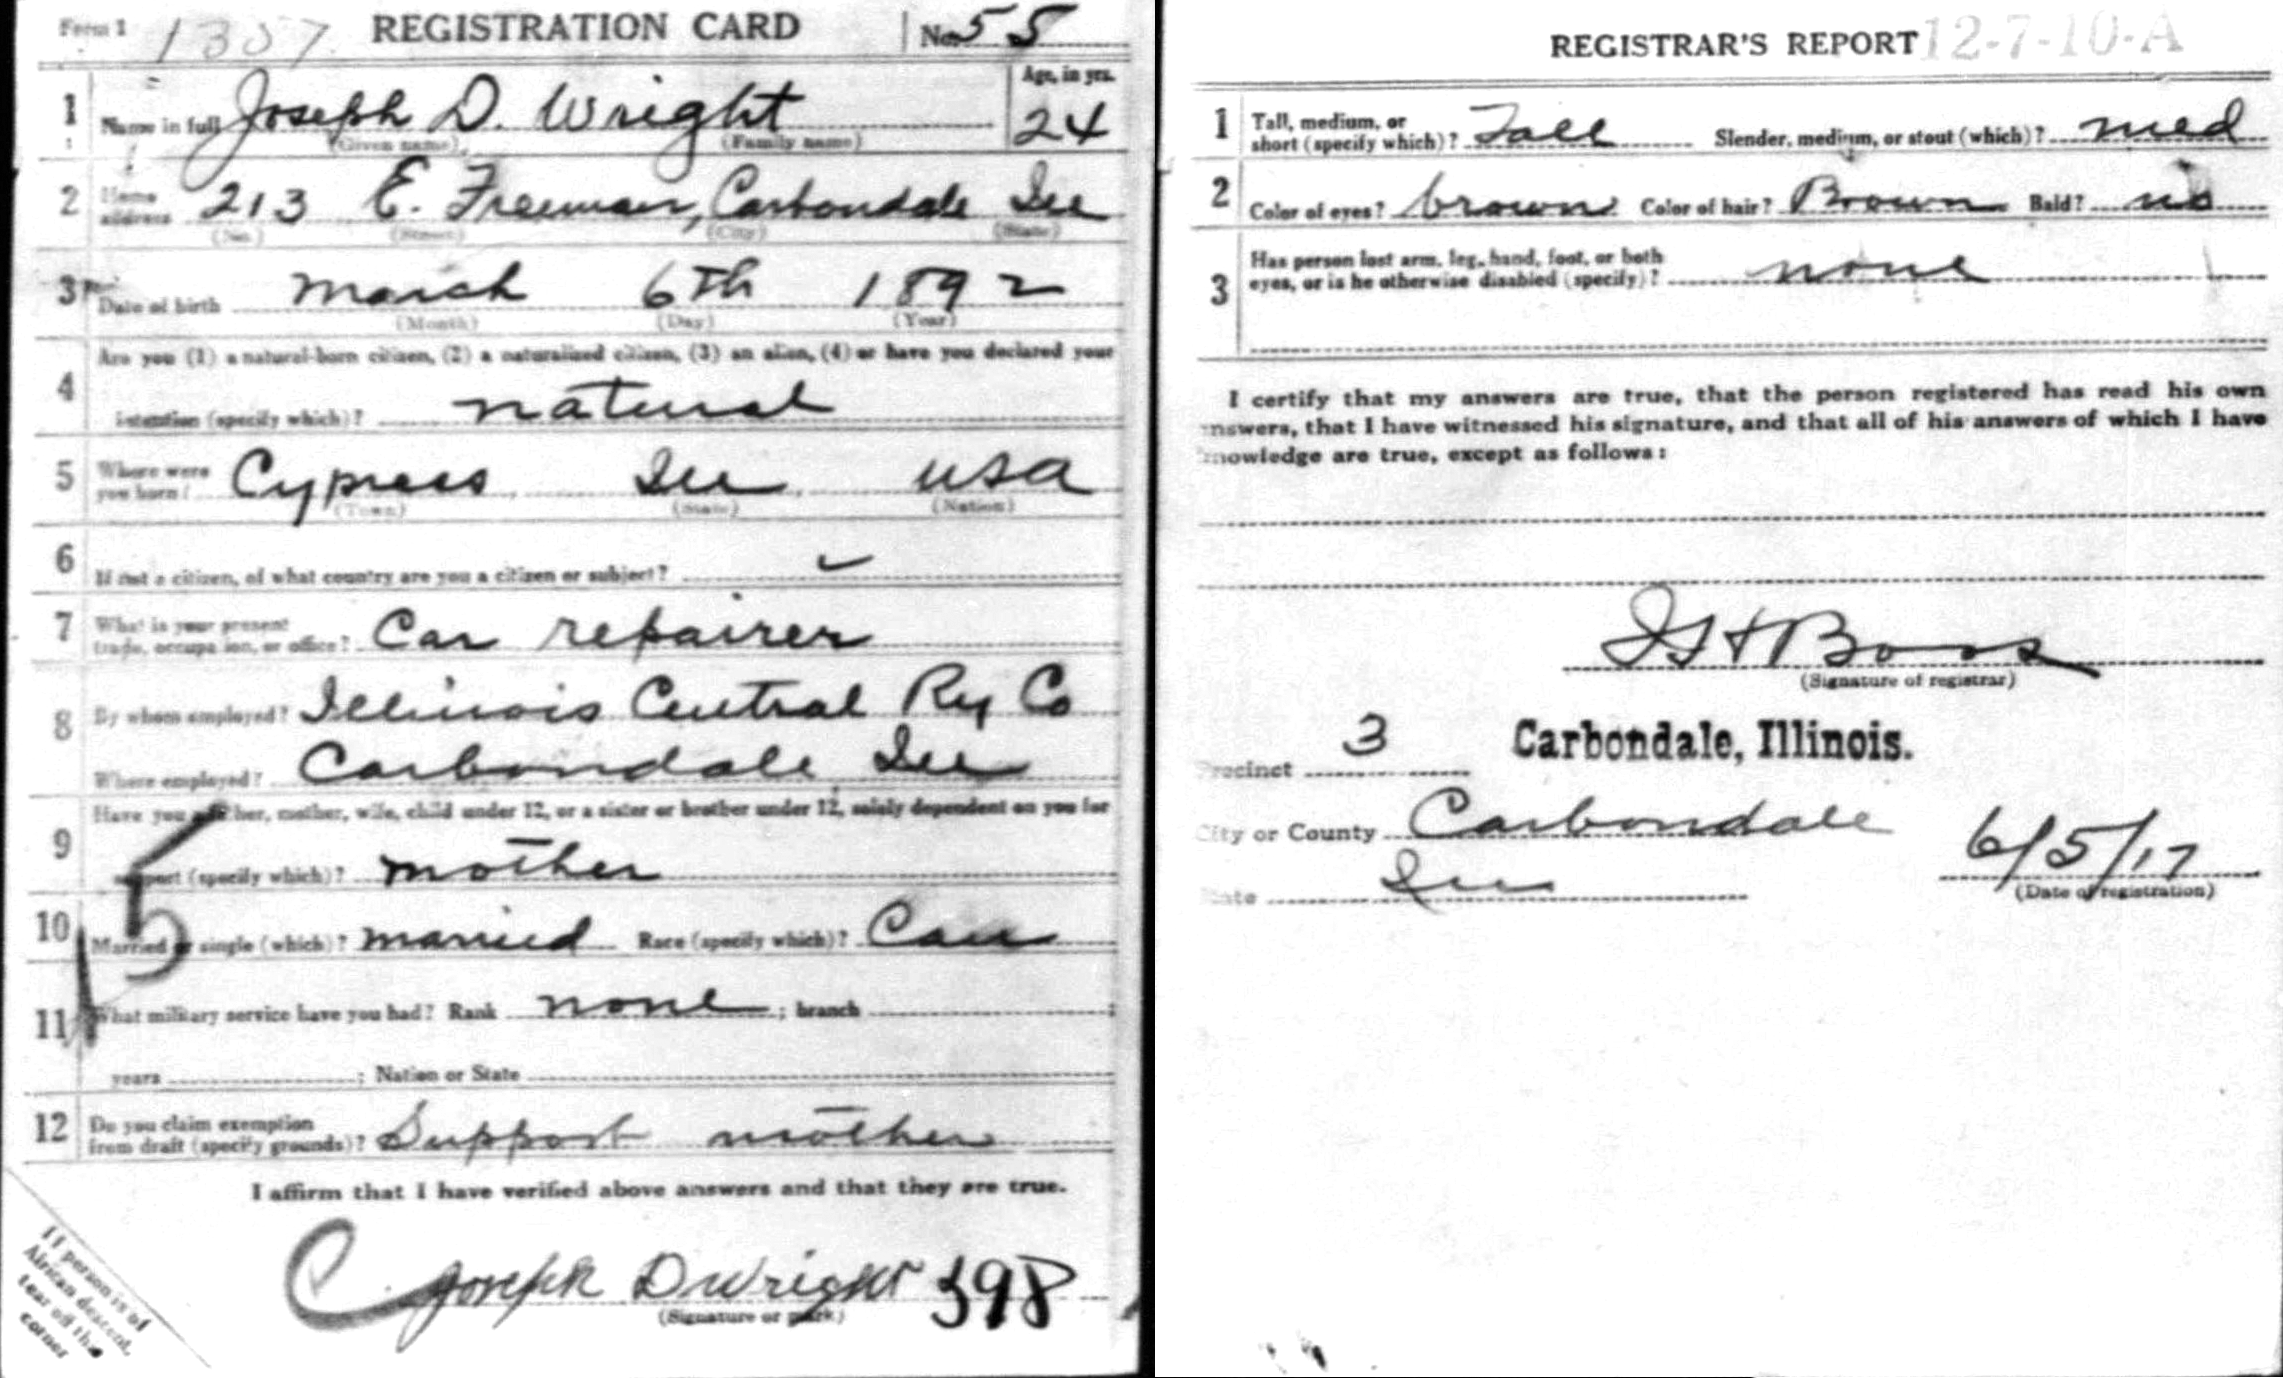 Form 1 1357 REGISTRATION CARD No. 55
1 Name in full Joseph D. Wright Age, in yrs. 24
(Given name) (Family name)
2 Home address 213 E. Freeman, Carbondale Ill
(No.) (Street) (City) (State)
3 Date of birth March 6th 1892
(Month) (Day) (Year)
4 Are you (1) a natural-born citizen, (2) a naturalized citizen, (3) an alien, (4) or have you declared your
intention (specify which)? natural
5 Where were you born? Cypress Ill USA
(Town) (State) (Nation)
6 If not a citizen, of what country are you a citizen or subject?
7 What is your present
trade, occupation, or office? Car repairer
8 By whom employed? Illinois Central Ry Co
Where employed? Carbondale Ill
9 Have you a father, mother, wife, child under 12, or a sister or brother under 12, solely dependent on you for
support (specify which)? mother
10 Married or single (which)? married Race (specify which)? Cau
11 What military service have you had? Rank none ; branch
years ; Nation or State
12 Do you claim exemption
from draft (specify grounds)? Support mother
I affirm that I have verified above answers and that they are true.
Joseph D Wright 398
(Signature or mark)
If person is of
African descent,
tear off this
corner
REGISTRAR'S REPORT 12-7-10-A
1 Tall, medium, or
short (specify which)? Tall Slender, medium, or stout (which)? med
2 Color of eyes? brown Color of hair? Brown Bald? no
3 Has person lost arm, leg, hand, foot, or both
eyes, or is he otherwise disabled (specify)? none
I certify that my answers are true, that the person registered has read his own
answers, that I have witnessed his signature, and that all of his answers of which I have
knowledge are true, except as follows:
Boos
(Signature of registrar)
Precinct 3 Carbondale, Illinois.
City or County Carbondale
State Ill 6/5/17
(Date of registration)